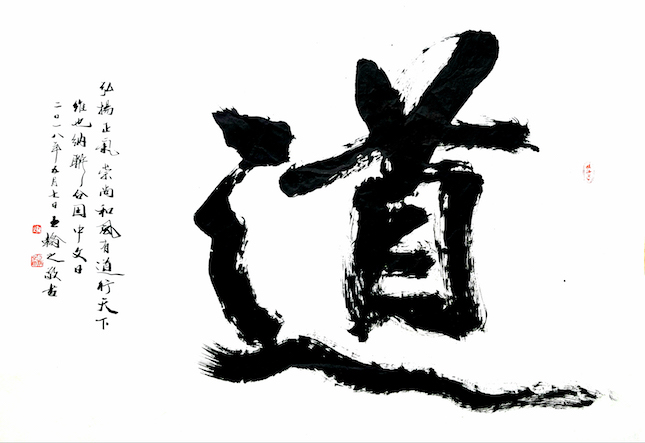 道
弘扬正氣 崇尚和風 有道行天下
維也納聯合国中文日
二〇一八年五月七日 王掄之敬書